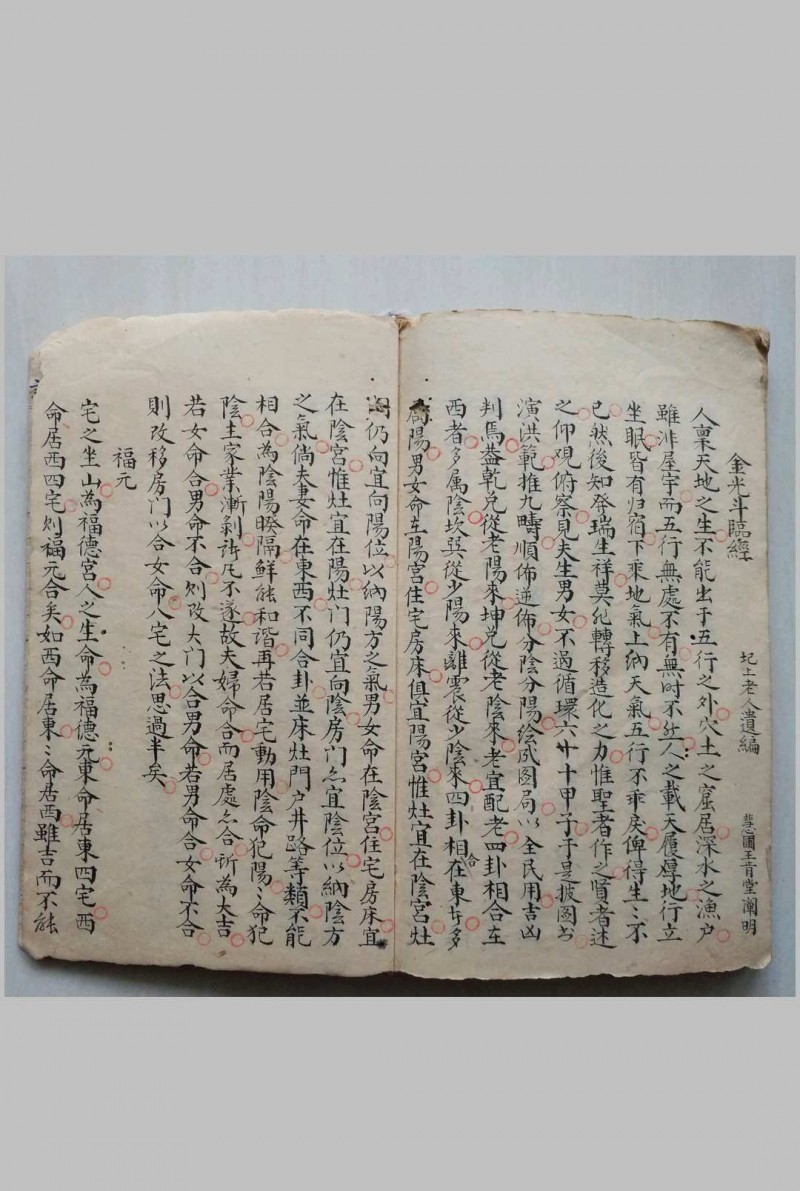 金光斗臨經 圯上老人遺編 王肯堂闡明
人稟天地之生不能出于五行之外穴土之窟居深水之漁户
雖非屋宇而五行無處不有無時不然人之載天履厚地行立
坐眠皆有归宿下乘地氣上納天氣五行不乖戾俾得生〻不
已然後知發瑞生祥莫非轉移造化之力惟聖者作之賢者述
之仰观俯察見夫生男女不过循環六十甲子于是披图书
演洪範推九疇順佈逆佈分陰分陽绘成图局以全民用吉凶
判焉蓋乾兑從老陽來坤兑從老陰來老宜配老四卦相合在
西者多属陰坎巽從少陽來離震從少陰來四卦相合在東者多
属陽男女命在陽宫住宅房床俱宜陽宫惟灶宜在陰宫灶
门仍向宜向陽位以納陽方之氣男女命在陰宫住宅房床宜
在陰宫惟灶宜在陽灶门仍宜向陰房门亦宜陰位以納陰方
之氣倘夫妻命在東西不同合卦並床灶門户井路等類不能
相合為陰陽暌隔鲜能和谐再若居宅動用陰命犯陽〻命犯
陰主家業漸剥诸凡不遂故夫婦命合而居處亦合所為大吉
若女命合男命不合则改大门以合男命若男命合女命不合
則改移房门以合女命八宅之法思過半矣
福元
宅之坐山為福德宫人之生命為福德元東命居東四宅西
命居西四宅则福元合矣如西命居東〻命居西雖吉而不能